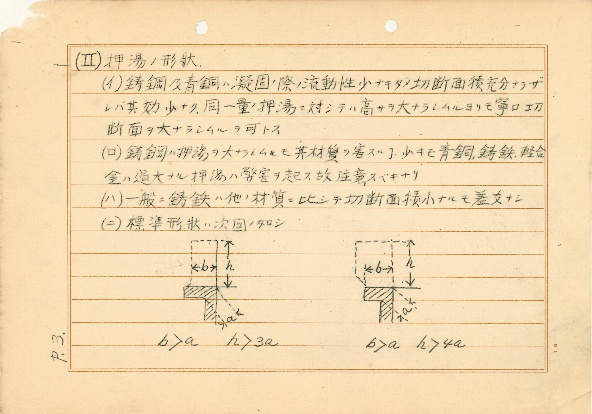 (II) 押湯ノ形狀.
(イ) 鋳鋼及青銅ハ凝固ノ際ノ流動性少ナキタメ切断面積充分ナラザ
レバ其効少ナク、同一量ノ押湯ニ対シテハ高サヲ大ナラシムルヨリモ寧ロ切
断面ヲ大ナラシムルヲ可トス
(ロ) 鋳鋼ハ押湯ヲ大ナラシムルモ其材質ヲ害スル事少キモ青銅、鋳鉄、軽合
金ハ過大ナル押湯ハ弊害ヲ起ス故注意スベキナリ
(ハ) 一般ニ鋳鉄ハ他ノ材質ニ比シテ切断面積小ナルモ差支ナシ
(ニ) 標準形狀ハ次図ノ如シ
b h a
b>a h>3a
b h a
b>a h>4a
P.3.